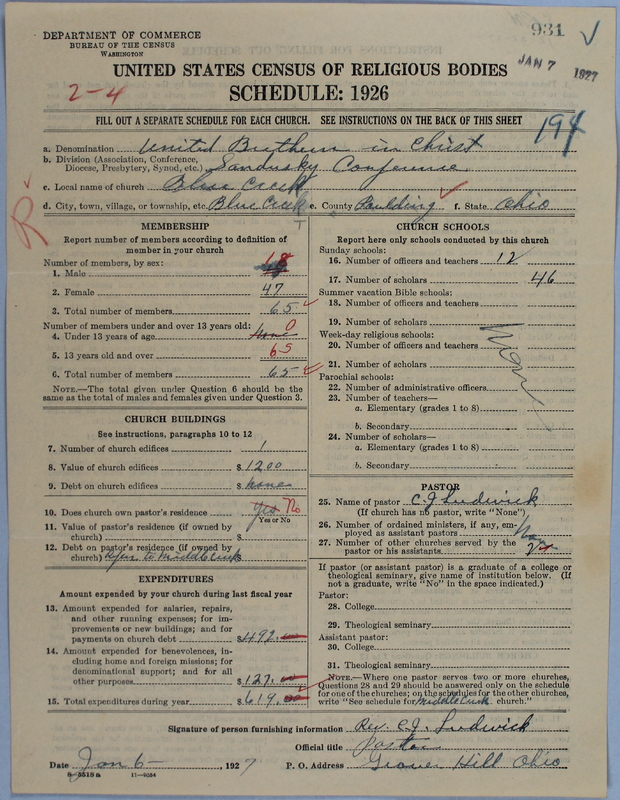 931
DEPARTMENT OF COMMERCE
BUREAU OF THE CENSUS
WASHINGTON
JAN 7 1927
UNITED STATES CENSUS OF RELIGIOUS BODIES
2-4
SCHEDULE: 1926
FILL OUT A SEPARATE SCHEDULE FOR EACH CHURCH. SEE INSTRUCTIONS ON THE BACK OF THIS SHEET
194
a. Denomination United Brethren in Christ
b. Division (Association, Conference,
Diocese, Presbytery, Synod, etc.) Sandusky Conference
c. Local name of church Blue Creek
d. City, town, village, or township, etc. Blue Creek e. County Paulding f. State Ohio
R
MEMBERSHIP
Report number of members according to definition of
member in your church
Number of members, by sex:
1. Male 18
2. Female 47
3. Total number of members 65
Number of members under and over 13 years old:
4. Under 13 years of age None 0
5. 13 years old and over 65
6. Total number of members 65
NOTE.—The total given under Question 6 should be
same as the total of males and females given under Question 3.
CHURCH BUILDINGS
See instructions, paragraphs 10 to 12
7. Number of church edifices 1
8. Value of church edifices $1200
9. Debt on church edifices $ none
10. Does church own pastor's residence yes No
Yes or No
11. Value of pastor's residence (if owned by
church) $
12. Debt on pastor's residence (if owned by
church) to Middle Creek
EXPENDITURES
Amount expended by your church during last fiscal year
13. Amount expended for salaries, repairs,
and other running expenses; for im-
provements or new buildings; and for
payments on church debt $492.00
14. Amount expended for benevolences, in-
cluding home and foreign missions; for
denominational support; and for all
other purposes $127.00
15. Total expenditures during year $619.00
CHURCH SCHOOLS
Report here only schools conducted by this church
Sunday schools:
16. Number of officers and teachers 12
17. Number of scholars 46
Summer vacation Bible schools:
18. Number of officers and teachers
19. Number of scholars
Week-day religious schools:
20. Number of officers and teachers
None
21. Number of scholars
Parochial schools:
22. Number of administrative officers
23. Number of teachers—
a. Elementary (grades 1 to 8)
b. Secondary
24. Number of scholars—
a. Elementary (grades 1 to 8)
b. Secondary
PASTOR
25. Name of pastor C. J. Ludwick
(If church has no pastor, write "None")
26. Number of ordained ministers, if any, em-
ployed as assistant pastors No
27. Number of other churches served by the
pastor or his assistants 2
If pastor (or assistant pastor) is a graduate of a college or
theological seminary, give name of institution below. (If
not a graduate, write "No" in the space indicated.)
Pastor:
28. College
29. Theological seminary
Assistant pastor:
30. College
31. Theological seminary
NOTE.—Where one pastor serves two or more churches,
Questions 28 and 29 should be answered only on the schedule
for one of the churches; on the schedules for the other churches,
write "See schedule for Middle Creek church."
Signature of person furnishing information Rev. C. J. Ludwick
Official title Pastor
Date Jan 6- , 1927 P. O. Address Grover Hill Ohio
8-5518a 11-9054